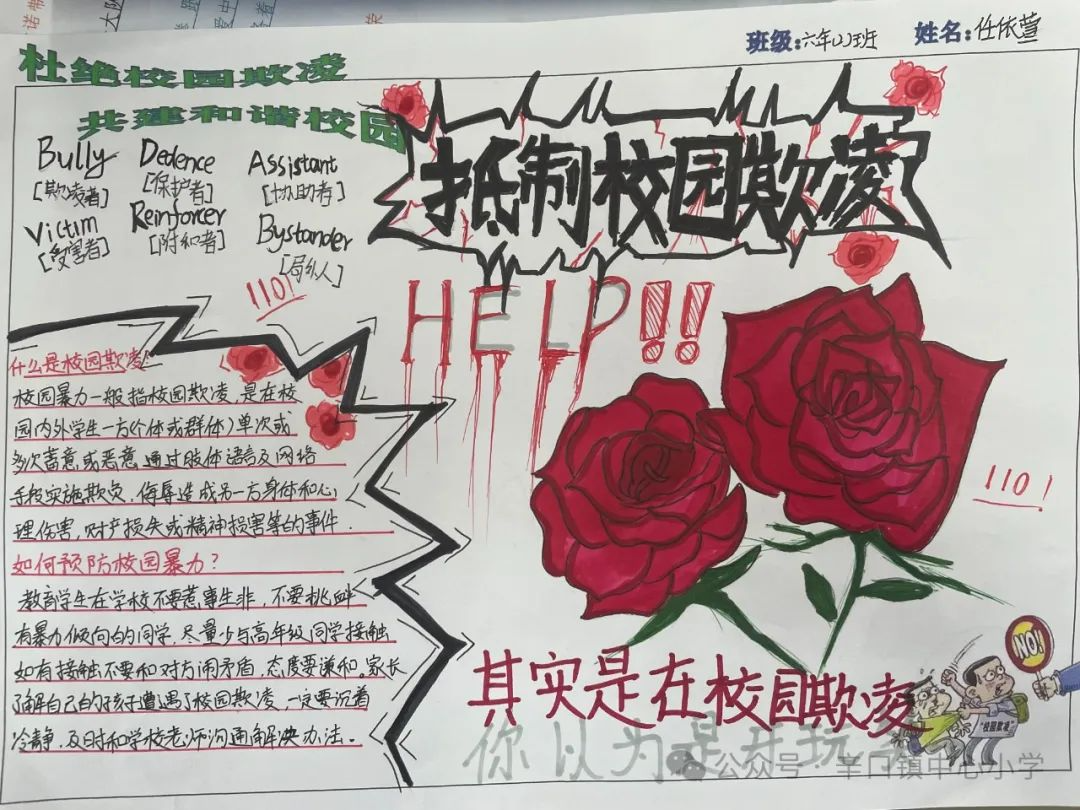 班级:六年(1)班
姓名:任依萱
杜绝校园欺凌
共建和谐校园
Bully
[欺凌者]
Dedence
[保护者]
Assistant
[协助者]
Victim
[受害者]
Reinforcer
[附和者]
Bystander
[局外人]
110!
抵制校园欺凌
HELP!!
什么是校园欺凌!
校园暴力一般指校园欺凌,是在校
园内外学生一方(个体或群体)单次或
多次蓄意或恶意通过肢体语言及网络
手段实施欺负,侮辱造成另一方身体和心
理伤害,财产损失或精神损害等的事件.
如何预防校园暴力?
教育学生在学校不要惹事生非,不要挑衅
有暴力倾向的同学,尽量少与高年级同学接触
如有接触不要和对方闹矛盾,态度要谦和。家长
了解自己的孩子遭遇了校园欺凌,一定要沉着
冷静,及时和学校老师沟通解决办法。
110!
NO!
"校园欺凌"
其实是在校园欺凌
你以为是在玩
公众号·辛口镇中心小学